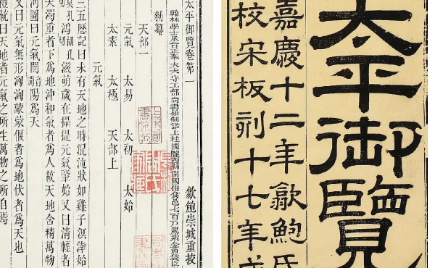 太平御覽
嘉慶十二年歙鮑氏
校宋板刻十七年成
太平御覽卷第一
歙鮑崇城重校
天部一
元氣 太易 太初 太始
太素 太極 天部上
元氣
三五歷記曰未有天地之時混沌狀如雞子溟涬始
為天濁重者下為地沖和氣者為人故天地含精萬物
河圖曰元氣闓陽為天
又曰元氣無形洶洶蒙蒙偃者為地伏者為天也
禮統曰天地者元氣之所生萬物之所自焉